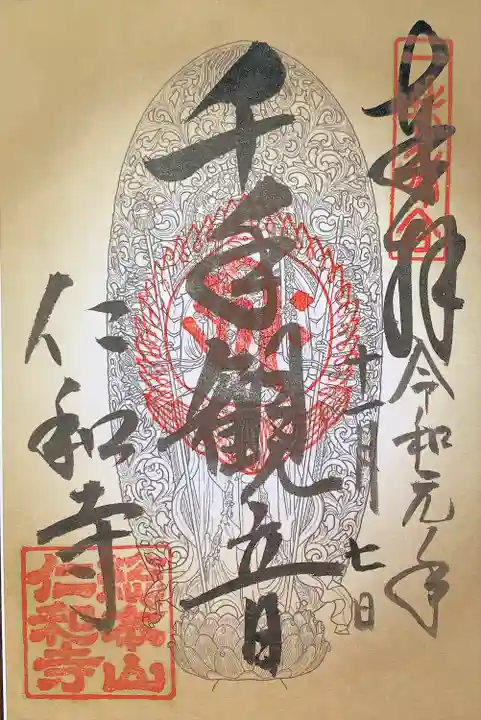 奉拝
令和元年
十一月
七日
千手観音
仁和寺
総本山
仁和寺